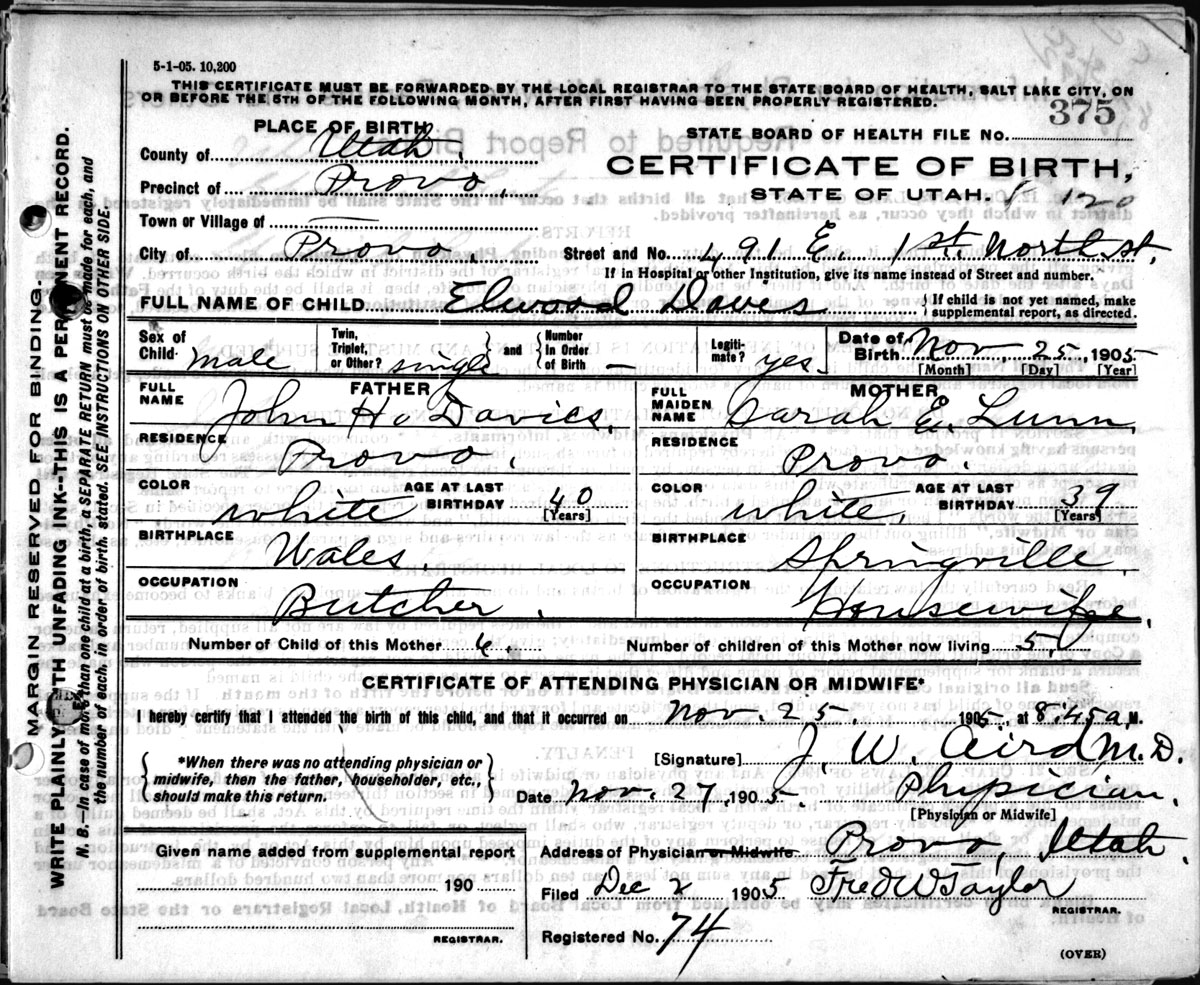 5-1-05. 10,200
THIS CERTIFICATE MUST BE FORWARDED BY THE LOCAL REGISTRAR TO THE STATE BOARD OF HEALTH, SALT LAKE CITY, ON
OR BEFORE THE 5TH OF THE FOLLOWING MONTH, AFTER FIRST HAVING BEEN PROPERLY REGISTERED.
375
PLACE OF BIRTH
STATE BOARD OF HEALTH FILE NO.
County of Utah.
CERTIFICATE OF BIRTH,
Precinct of Provo.
STATE OF UTAH. 120
Town or Village of —
City of Provo. Street and No. 491 E. 1st. North St.
If in Hospital or other Institution, give its name instead of Street and number.
FULL NAME OF CHILD Elwood Daves { If child is not yet named, make
supplemental report, as directed.
Sex of Child male
Twin, Triplet, or Other? single } and { Number In Order of Birth —
Legiti- mate? yes.
Date of Birth Nov. 25 1905
[Month] [Day] [Year]
FATHER
FULL NAME John H. Davies.
MOTHER
FULL MAIDEN NAME Sarah E. Lunn.
RESIDENCE Provo.
RESIDENCE Provo.
COLOR white AGE AT LAST BIRTHDAY 40 [Years]
COLOR white. AGE AT LAST BIRTHDAY 39 [Years]
BIRTHPLACE Wales.
BIRTHPLACE Springville.
OCCUPATION Butcher.
OCCUPATION Housewife.
Number of Child of this Mother 6. Number of children of this Mother now living 5
CERTIFICATE OF ATTENDING PHYSICIAN OR MIDWIFE*
I hereby certify that I attended the birth of this child, and that it occurred on Nov. 25. 1905, at 8.45a M.
{ *When there was no attending physician or
midwife, then the father, householder, etc.,
should make this return. }
[Signature] J. W. Aird M.D.
Date Nov. 27, 1905. Physician.
[Physician or Midwife]
Given name added from supplemental report
Address of Physician or Midwife Provo, Utah.
190
Filed Dec 2 1905 Fred W Taylor
REGISTRAR.
REGISTRAR.
Registered No. 74
(OVER)
MARGIN RESERVED FOR BINDING.
WRITE PLAINLY WITH UNFADING INK--THIS IS A PERMANENT RECORD.
N. B.—In case of more than one child at a birth a SEPARATE RETURN must be made for each, and
the number of each, in order of birth, stated. SEE INSTRUCTIONS ON OTHER SIDE.